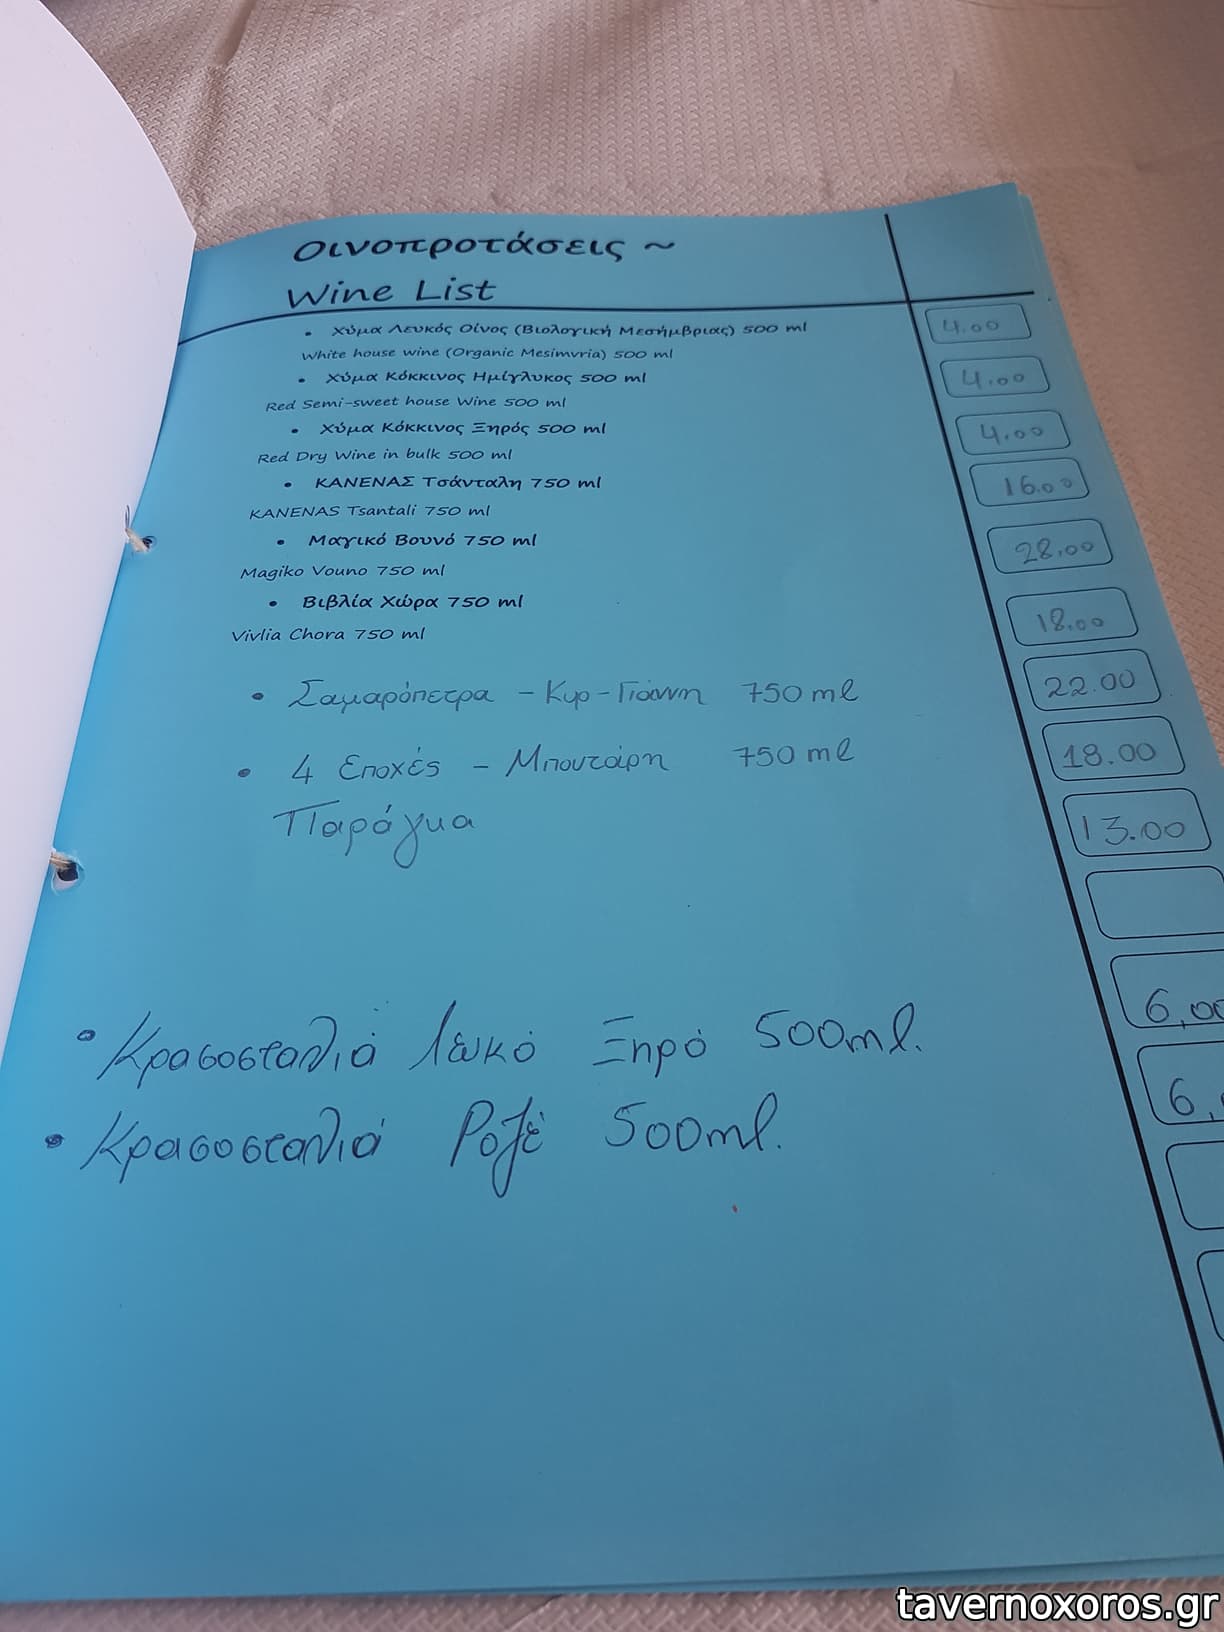 Οινοπροτάσεις ~
Wine List
• Χύμα Λευκός Οίνος (Βιολογική Μεσήμβριας) 500 ml 4.00
White house wine (Organic Mesimvria) 500 ml
• Χύμα Κόκκινος Ημίγλυκος 500 ml 4.00
Red Semi-sweet house Wine 500 ml
• Χύμα Κόκκινος Ξηρός 500 ml 4.00
Red Dry Wine in bulk 500 ml
• ΚΑΝΕΝΑΣ Τσάνταλη 750 ml 16.00
KANENAS Tsantali 750 ml
• Μαγικό Βουνό 750 ml 28.00
Magiko Vouno 750 ml
• Βιβλία Χώρα 750 ml 18.00
Vivlia Chora 750 ml
• Σαμαρόπετρα - Κυρ-Γιάννη 750 ml 22.00
• 4 Εποχές - Μπουτάρη 750 ml 18.00
Παράγκα 13.00
• Κρασοσταλιά Λευκό Ξηρό 500ml. 6,00
• Κρασοσταλιά Ροζέ 500ml. 6,
tavernoxoros.gr